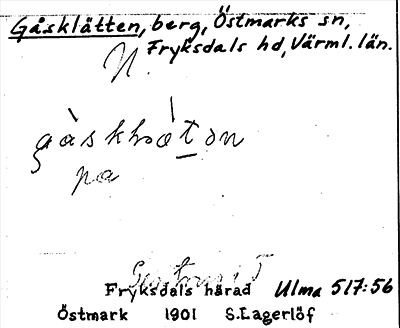 Gåsklätten, berg, Östmarks sn,
Fryksdals hd, Värml. län.
N.
på
Fryksdals härad Ulma 517:56
Östmark 1901 S.Lagerlöf